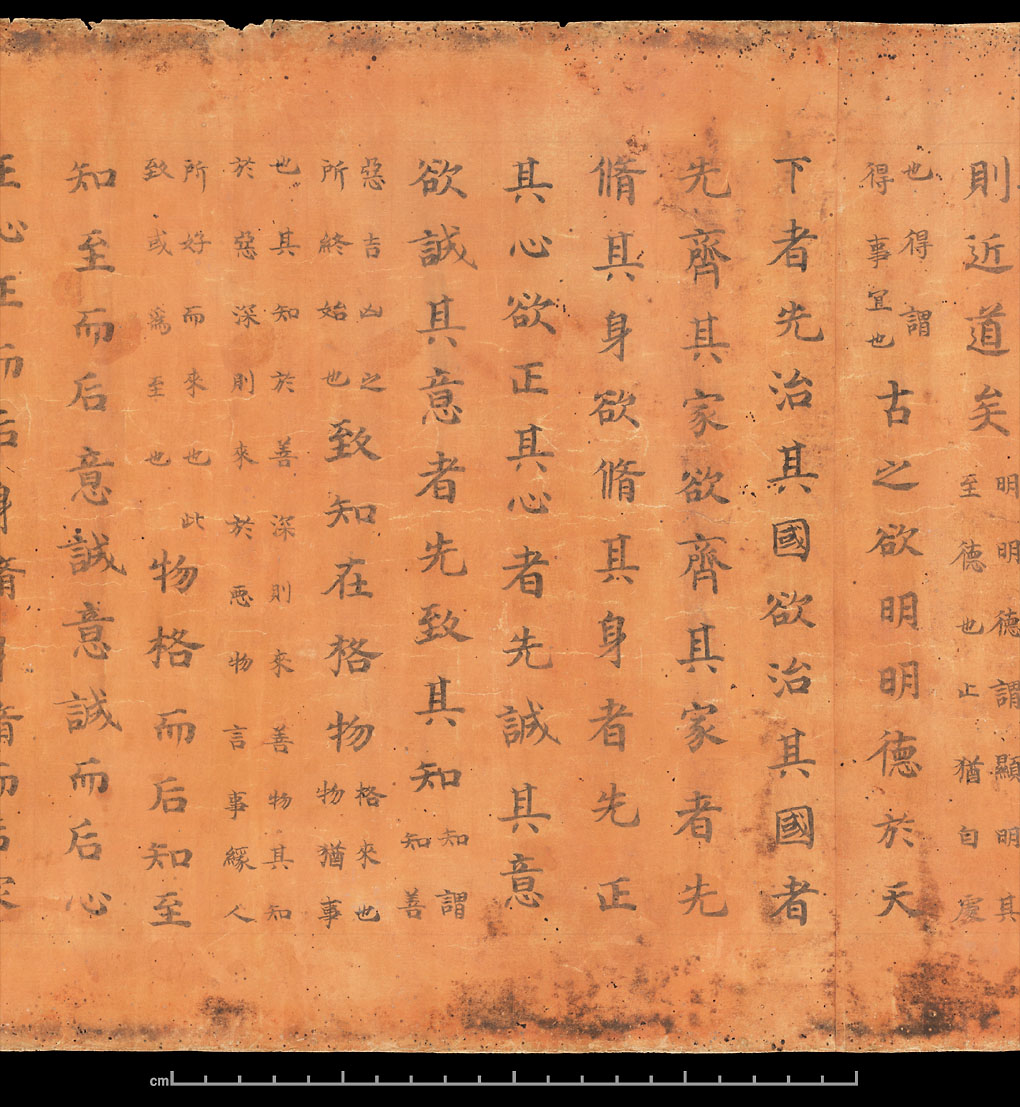 則近道矣明明德謂顯明其
至德也止猶自處
也得謂
得事宜也古之欲明明德於天
下者先治其國欲治其國者
先齊其家欲齊其家者先
脩其身欲脩其身者先正
其心欲正其心者先誠其意
欲誠其意者先致其知知謂
知善
惡吉凶之
所終始也致知在格物格來也
物猶事
也其知於善深則來善物其知
於惡深則來於悪物言事緣人
所好而來也此
致或為至也物格而后知至
知至而后意誠意誠而后心
正心正而后身脩身脩而后家